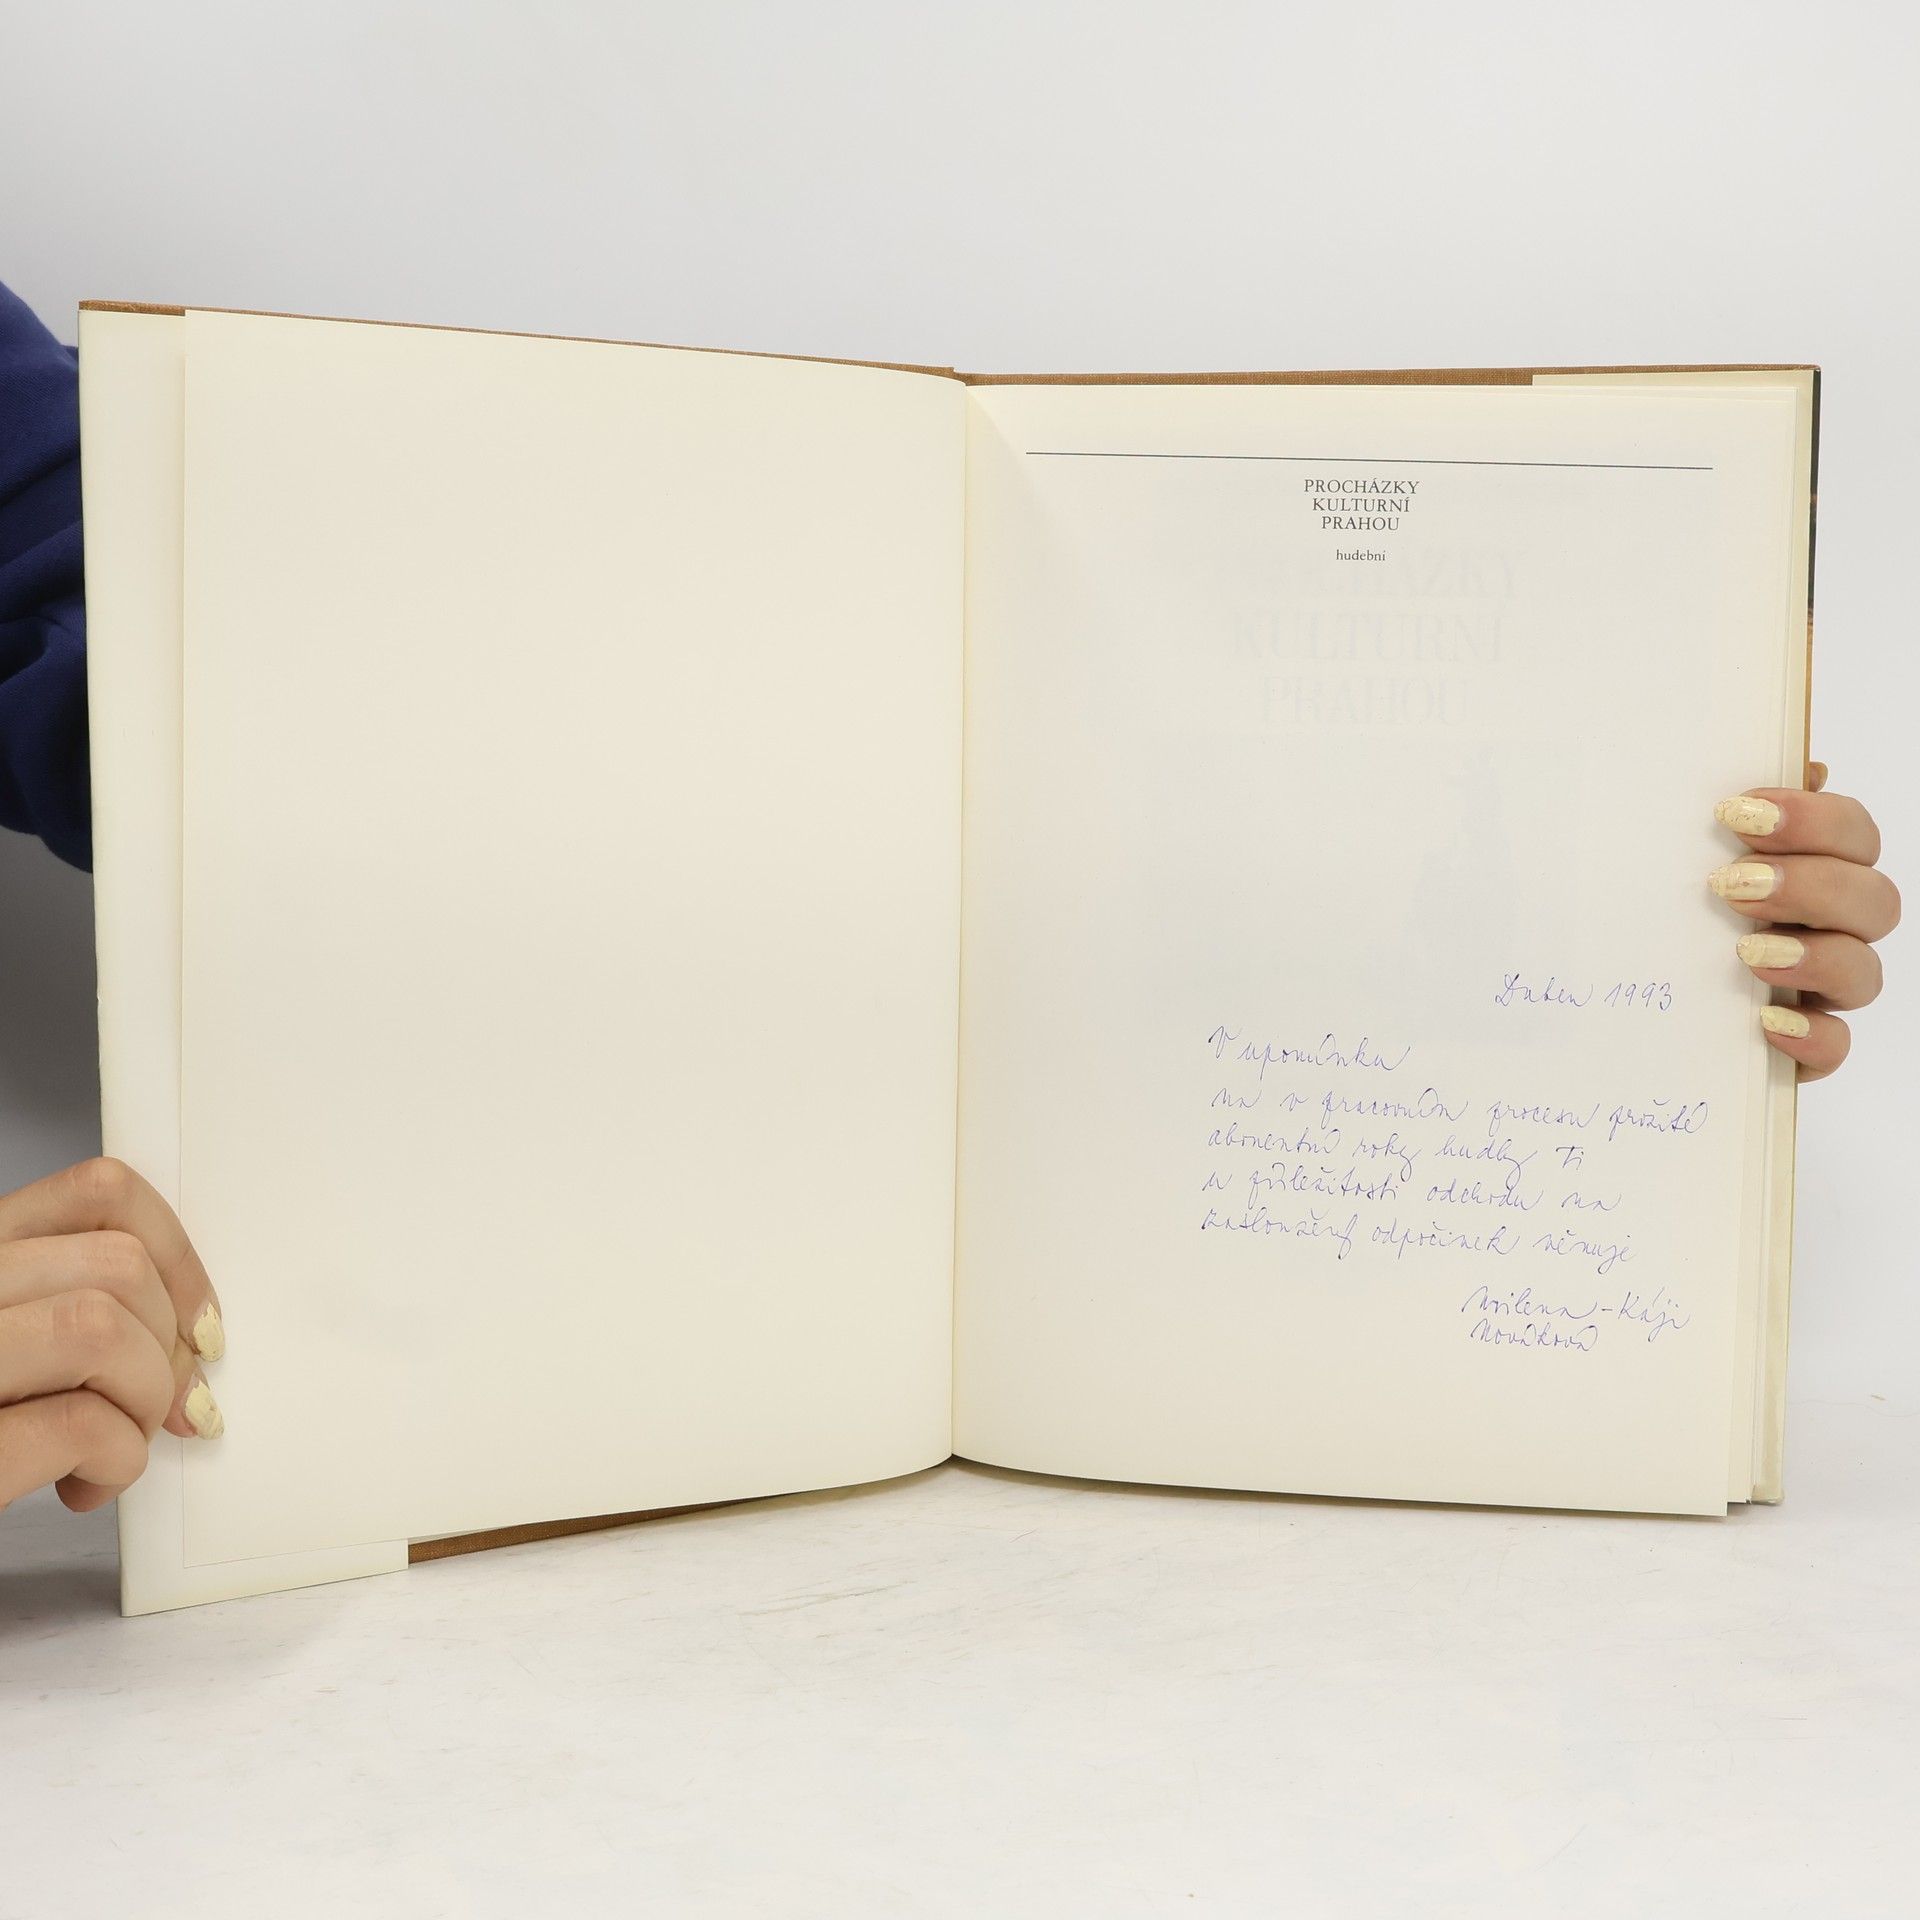 PROCHÁZKY
KULTURNÍ
PRAHOU
hudební
KULTURNÍ
PRAHOU
Duben 1993
V upomínku
na v pracovním procesu prožité
abonentní roky hudby Ti
u příležitosti odchodu na
zasloužený odpočinek věnuje
Milena - Káji
Nováková